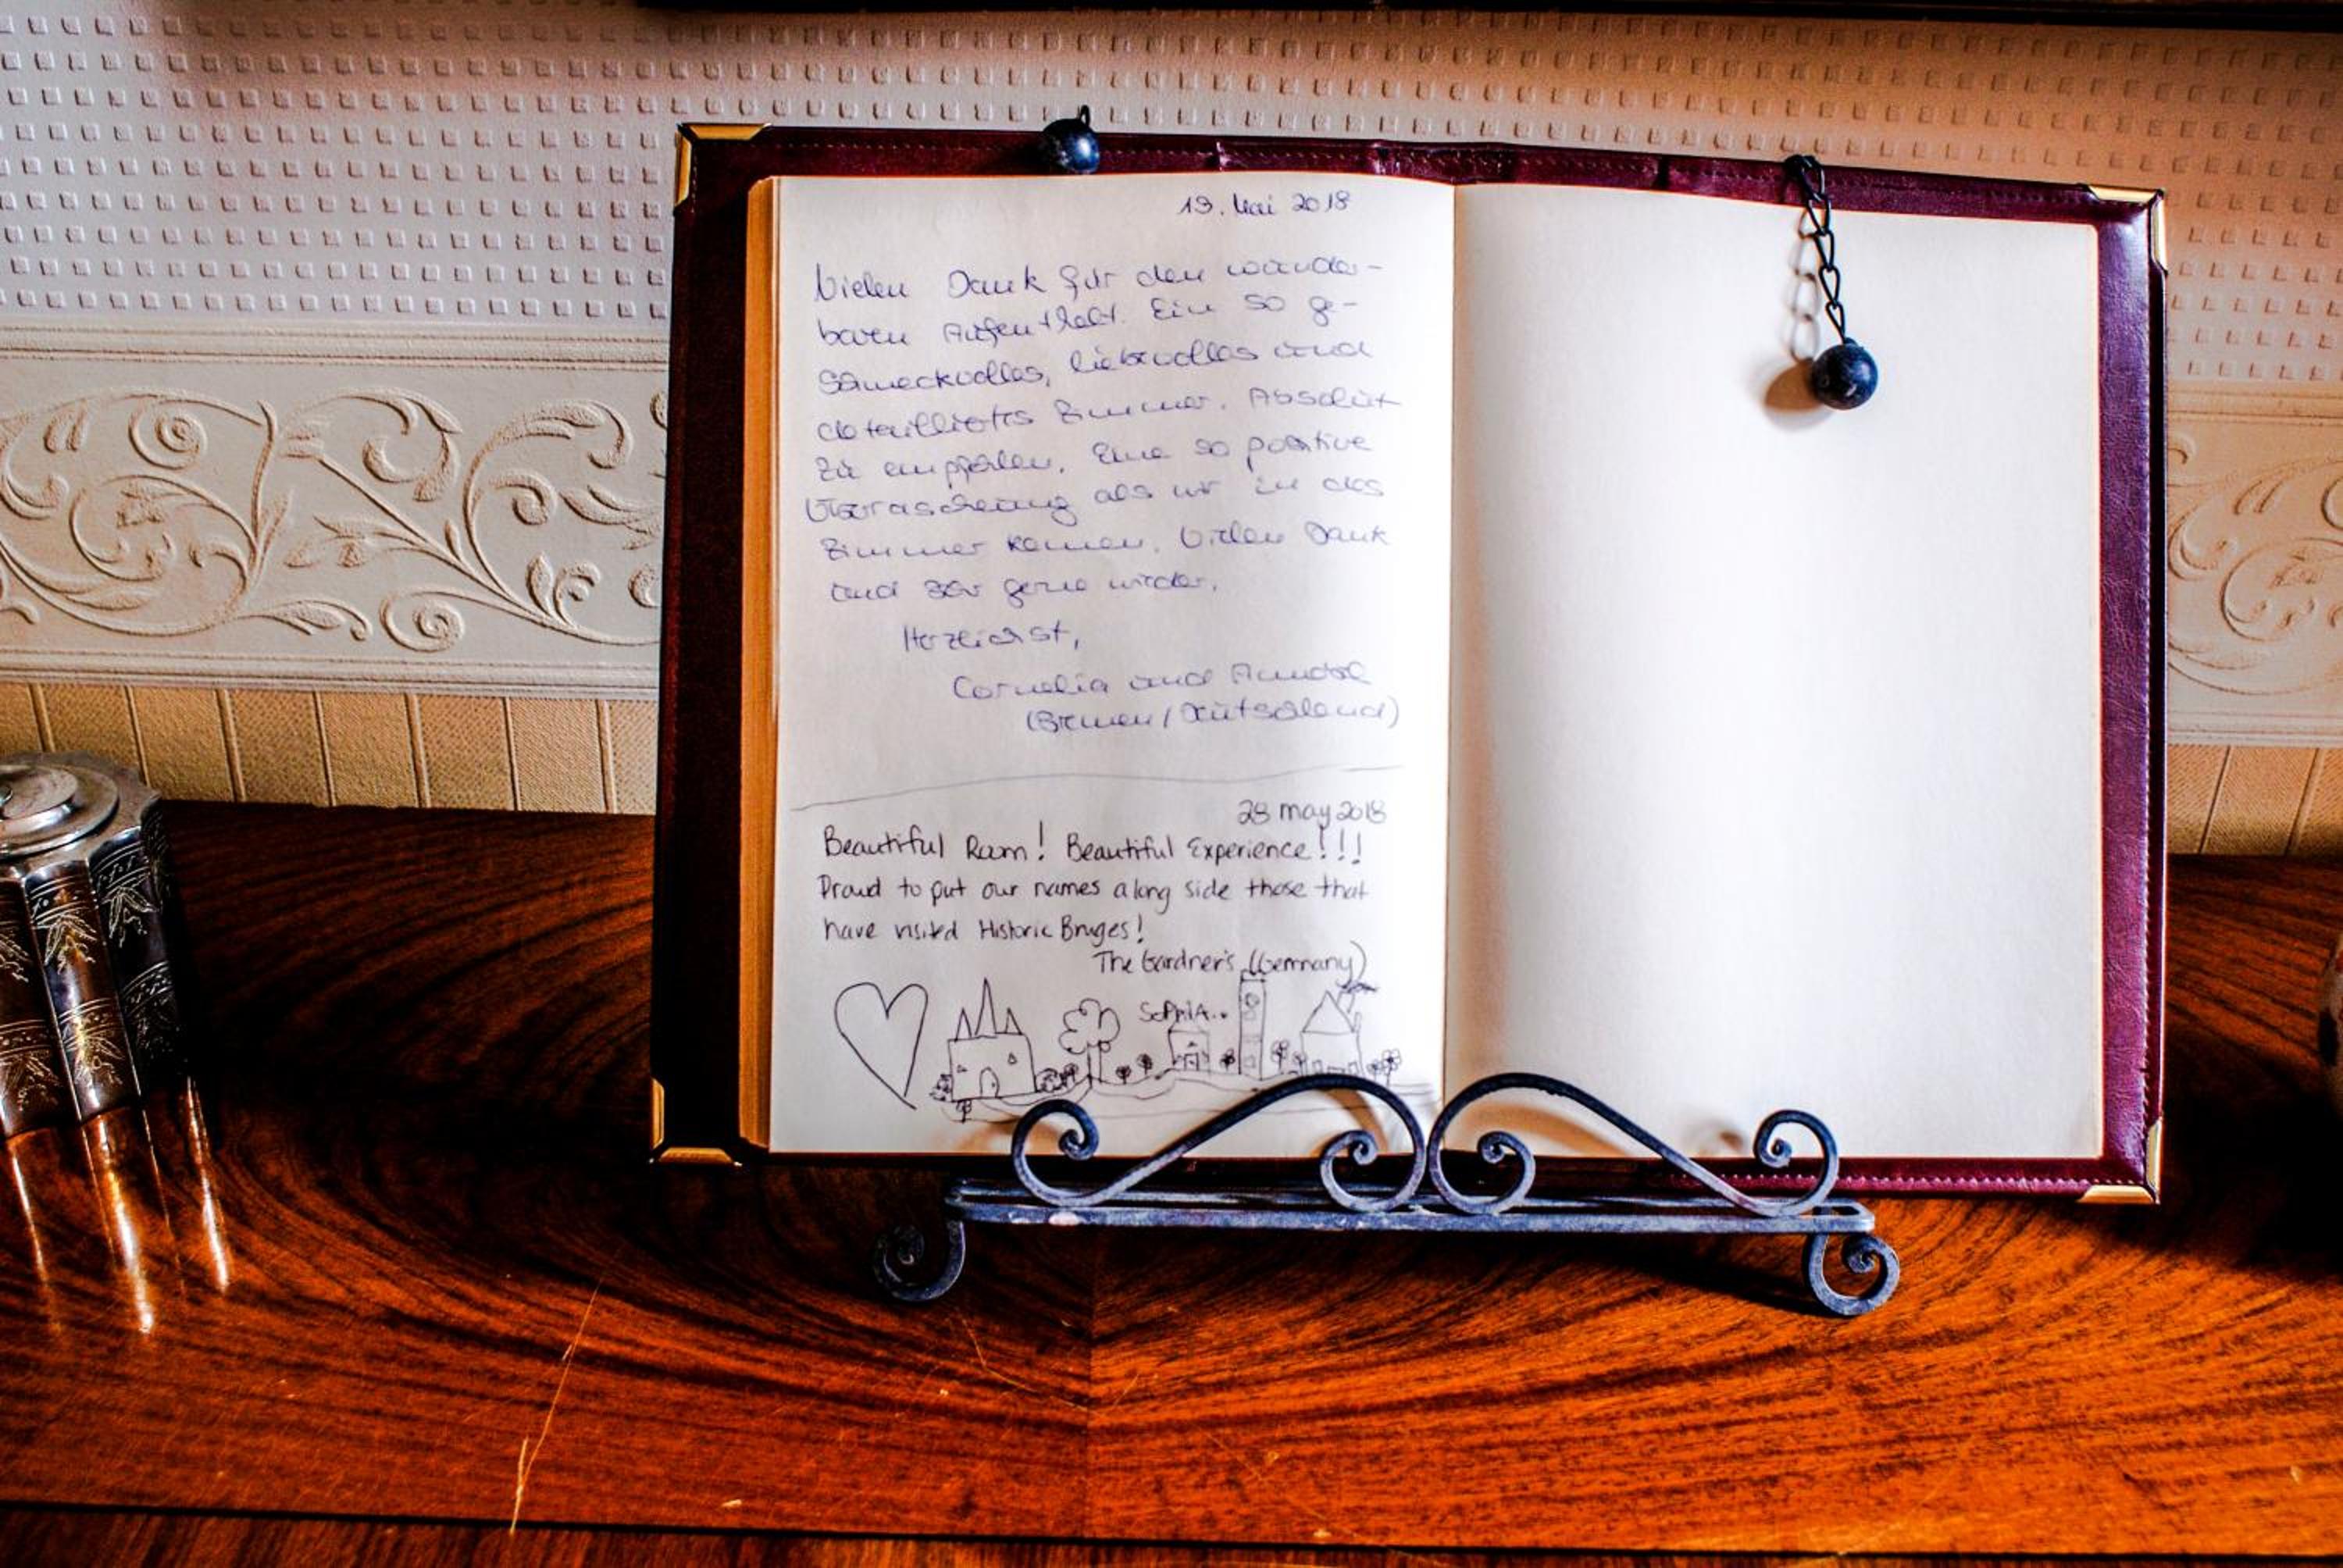 19. Mai 2018
Vielen Dank für den wunder-
baren Aufenthalt. Ein so ge-
schmackvolles, liebevolles und
detailliertes Zimmer. Absolut
zu empfehlen. Eine so positive
Überraschung als wir in das
Zimmer kamen. Vielen Dank
und sehr gerne wieder.
Herzlichst,
Cornelia und
(Bremen / Deutschland)
28 may 2018
Beautiful Room! Beautiful Experience!!!
Proud to put our names along side those that
have visited Historic Bruges!
The Gardner's (Germany)
SOPHIA..